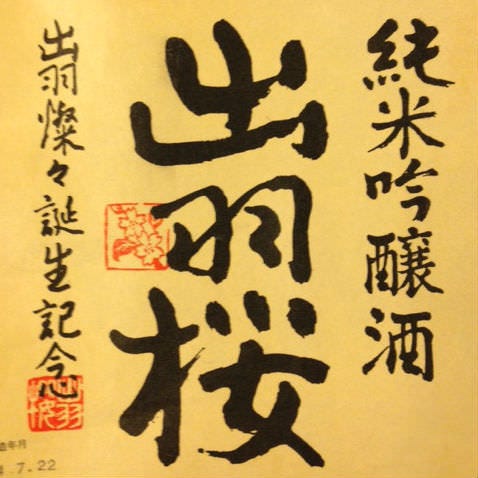 純米吟醸酒
出羽桜
出羽燦々誕生記念
造年月
.7.22